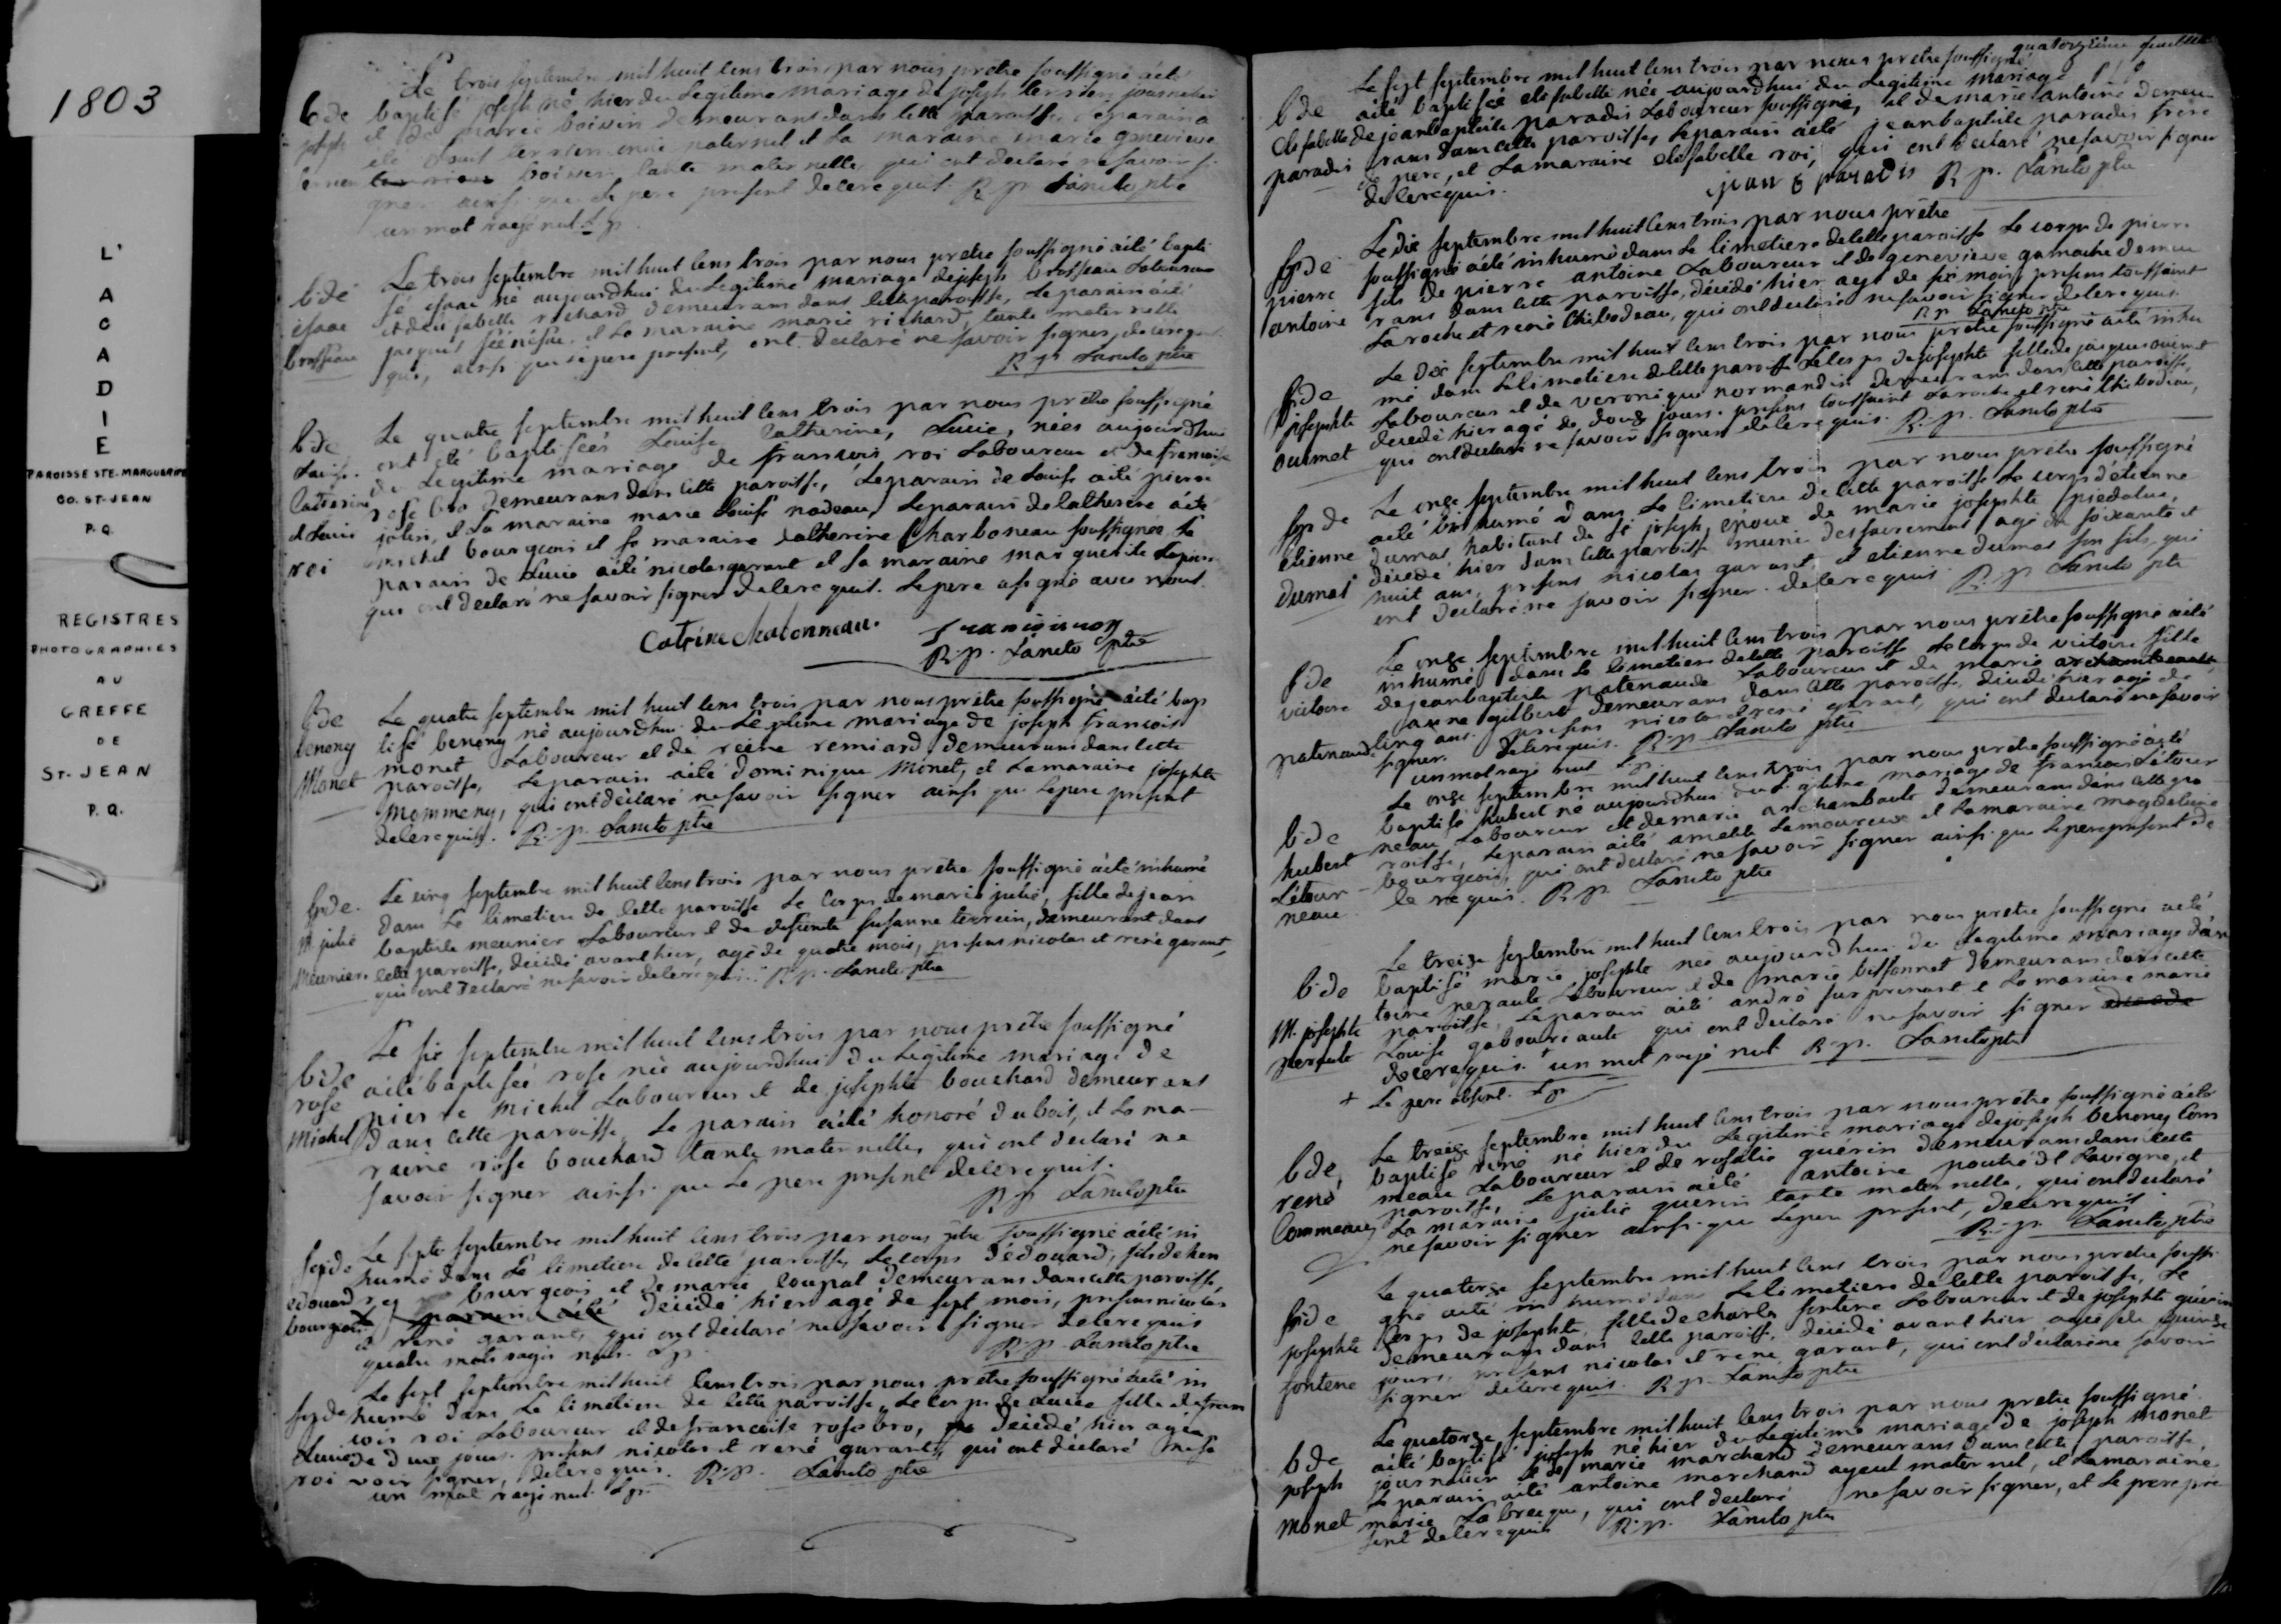 1803
L'
A
C
A
D
I
E
PAROISSE STE. MARGUERITE
CO. ST-JEAN
P.Q.
REGISTRES
PHOTOGRAPHIES
AU
GREFFE
DE
ST. JEAN
P.Q.
Le trois septembre mil huit cens trois par nous prêtre soussigné a été
b de baptisé joseph né hier du legitime mariage de joseph terrien journalier
joseph et de marie boissin demeurans dans cette paroisse, le parain a
été terrien oncle paternel et la maraine marie genevieve
terrien boissin tante maternelle qui ont declaré ne savoir si
gner ainsi que le pere present de ce requis. R. p. Lancto ptre
un mot rayé nul L p.
b de Le trois septembre mil huit cens trois par nous prêtre soussigné a été bapti
isaac sé isaac né aujourdhui du legitime mariage de joseph brosseau laboureur
et d'elisabelle richard demeurans dans cette paroisse, le parain a été
jacques et la maraine marie richard, tante maternelle
brosseau qui, ainsi que le pere present, ont declaré ne savoir signer, de ce requis
R p Lancto ptre
b de Le quatre septembre mil huit cens trois par nous prêtre soussigné
Louise ont été baptisées Louise, Catherine, Lucie, nées aujourdhui
Catherine du legitime mariage de francois roi laboureur et de francoise
rose bro demeurans dans cette paroisse, le parain de Louise a été pierre
et Lucie jolin, et la maraine marie Louise nadeau, le parain de Catherine a été
roi michel bourgeois et sa maraine Catherine Charboneau soussignée le
parain de Lucie a été nicolas garant et la maraine marguerite
qui ont declaré ne savoir signer de ce requis. Le pere a signé avec nous.
Catrine chabonneau. francois roy
R. p. Lancto ptre
b de Le quatre septembre mil huit cens trois par nous prêtre soussigné a été bap
benony tisé benony né aujourdhui du legitime mariage de joseph francois
monet laboureur et de reine remiard demeurans dans cette
Monet paroisse, le parain a été dominique monet, et la maraine josephte
mommeny, qui ont déclaré ne savoir signer ainsi que le pere present
de ce requis. R. p. Lancto ptre
sp de Le cinq septembre mil huit cens trois par nous prêtre soussigné a été inhumé
M. julie dans le cimetiere de cette paroisse le corps de marie julie, fille de jean
baptiste meunier laboureur et de defunte susanne terrein, demeurant dans
Meunier cette paroisse, décédé avant hier, agé de quatre mois, presens nicolas et rené garant,
qui ont declaré ne savoir de ce requis. R. p. Lancto ptre
Le six septembre mil huit cens trois par nous prêtre soussigné
b de a été baptisée rose née aujourdhui du legitime mariage de
rose pierre michel laboureur et de josephte bouchard demeurans
Michel dans cette paroisse, le parain a été honoré dubois, et la ma-
raine rose bouchard tante maternelle, qui ont declaré ne
savoir signer ainsi que le pere present de ce requis.
R p Lancto ptre
sp de Le sept septembre mil huit cens trois par nous ptre soussigné a été in
humé dans le cimetiere de cette paroisse, le corps d'edouard, fils de hen
edouard ry bourgeois et de marie coupal demeurans dans cette paroisse,
bourgeois parain a été décédé hier agé de sept mois, presens nicolas
et rené garant, qui ont déclaré ne savoir signer de ce requis
quatre mots rayés nuls. L p. R. p. Lancto ptre
Le sept septembre mil huit cens trois par nous prêtre soussigné a été in
sp de humé dans le cimetiere de cette paroisse, le corps de Lucie fille de fran
cois roi laboureur et de francoise rose bro, décédé hier agée
Lucie de deux jours. presens nicolas et rené garant, qui ont déclaré ne sa
roi voir signer, de ce requis. R. p. Lancto ptre
un mot rayé nul. L p.
quatorzieme feuillet
Le sept septembre mil huit cens trois par nous prêtre soussigné
b de a été baptisée elisabelle née aujourdhui du legitime mariage
elisabelle de jean baptiste paradis laboureur soussigné, et de marie antoine demeu
paradis rans dans cette paroisse, le parain a été jean baptiste paradis frere
pere, et la maraine elisabelle roi, qui ont declaré ne savoir signer
de ce requis. jean b paradis R p. Lancto ptre
Le dix septembre mil huit cens trois par nous prêtre
sp de soussigné a été inhumé dans le cimetiere de cette paroisse le corps de pierre
pierre fils de pierre antoine laboureur et de genevieve gamache demeu
antoine rans dans cette paroisse, décédé hier agé de six mois, presens toussaint
Laroche et rené thibodeau, qui ont declaré ne savoir signer de ce requis.
R p Lancto ptre
Le dix septembre mil huit cens trois par nous prêtre soussigné a été inhu
sp de mé dans le cimetiere de cette paroisse le corps de josephte fille de jacques ouimet
josephte laboureur et de veronique normandin demeurans dans cette paroisse,
ouimet décedé hier agé de douze jours. presens toussaint Laroche et rené thibodeau,
qui ont declaré ne savoir signer de ce requis. R. p. Lancto ptre
Le onze septembre mil huit cens trois par nous prêtre soussigné
sp de a été inhumé dans le cimetiere de cette paroisse le corps d'etienne
etienne dumas habitant de st joseph, epoux de marie josephte piedalue,
décedé hier dans cette paroisse muni des sacremens agé de soixante et
dumas huit ans, presens nicolas garant et etienne dumas son fils, qui
ont declaré ne savoir signer de ce requis. R. p. Lancto ptre
Le onze septembre mil huit cens trois par nous prêtre soussigné a été
sp de inhumé dans le cimetiere de cette paroisse le corps de victoire fille
victoire de jean baptiste patenaude laboureur et de marie archambeault
anne gilbert demeurans dans cette paroisse, décedé hier agé de
patenaude cinq ans. presens nicolas et rené garant, qui ont declaré ne savoir
signer. de ce requis. R. p. Lancto ptre
un mot rayé nul L p.
Le onze septembre mil huit cens trois par nous prêtre soussigné a été
b de baptisé hubert né aujourdhui du legitime mariage de francois Létour
hubert neau laboureur et de marie archambault demeurans dans cette pa
roisse, le parain a été amable Lamoureux et la maraine magdeleine
Létour- bourgeois, qui ont declaré ne savoir signer ainsi que le pere present de
neau ce requis. R p Lancto ptre
Le treize septembre mil huit cens trois par nous prêtre soussigné a été
b de baptisé marie josephte née aujourdhui du legitime mariage d'an
toine peraulte laboureur et de marie bissonnet demeurans dans cette
M. josephte paroisse, le parain a été andré surprenant et la maraine marie
peraulte Louise gaboureaulte qui ont declaré ne savoir signer
de ce requis. un mot rayé nul R p. Lancto ptre
+ Le pere absent. L p
Le treize septembre mil huit cens trois par nous prêtre soussigné a été
b de baptisé rené né hier du legitime mariage de joseph benony com
rené meau laboureur et de rosalie guérin demeurans dans cette
Commeau paroisse, le parain a été antoine poutré dt Lavigne, et
la maraine julie guerin tante maternelle, qui ont declaré
ne savoir signer ainsi que le pere present, de ce requis
R. p. Lancto ptre
Le quatorze septembre mil huit cens trois par nous prêtre soussi
sp de gné a été inhumé dans le cimetiere de cette paroisse, le
josephte corps de josephte, fille de charles fontene laboureur et de josephte guérin
demeurans dans cette paroisse, décedé avant hier agée de quinze
fontene jours, presens nicolas et rené garant, qui ont declaré ne savoir
signer de ce requis. R p. Lancto ptre
Le quatorze septembre mil huit cens trois par nous prêtre soussigné
b de a été baptisé joseph né hier du legitime mariage de joseph monet
joseph journalier et de marie marchand demeurans dans cette paroisse,
le parain a été antoine marchand ayeul maternel, et la maraine
Monet marie Labrecque, qui ont declaré ne savoir signer, et le pere pre
sent de ce requis R. p. Lancto ptre